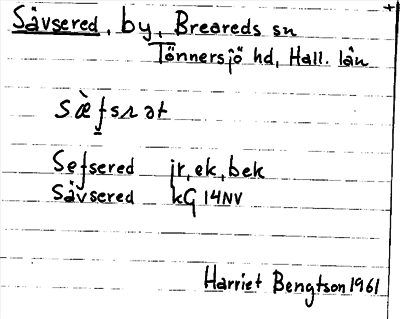 Sävsered, by, Breareds sn
Tönnersjö hd, Hall. län
sæ̀fsrət
Sefsered jr, ek, bek
Sävsered kG 14NV
Harriet Bengtson 1961